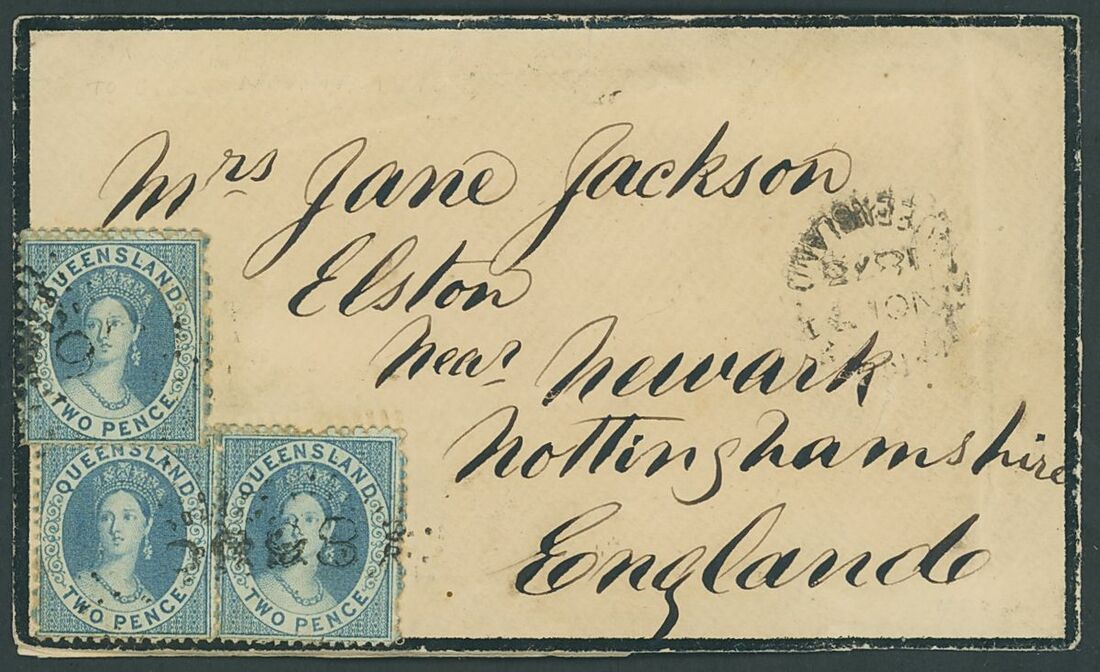 Mrs Jane Jackson
Elston
near Newark
Nottinghamshire
England
QUEENSLAND
TWO PENCE
QUEENSLAND
TWO PENCE
QUEENSLAND
TWO PENCE
QUEENSLAND